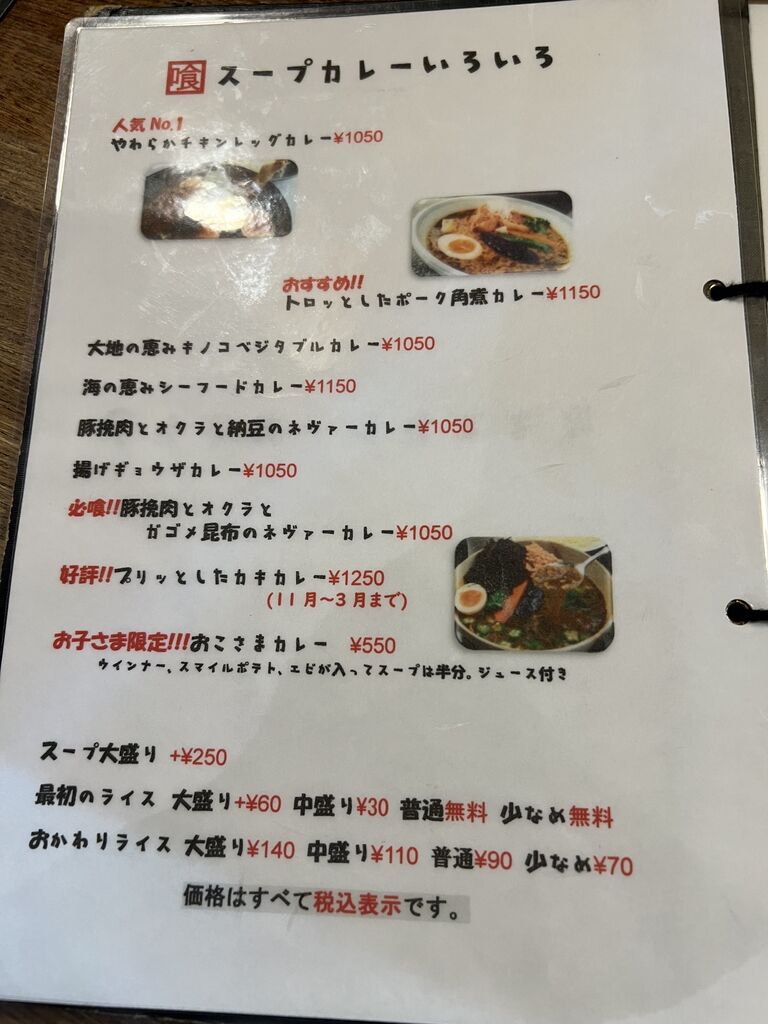 喰 スープカレーいろいろ
人気No.1
やわらかチキンレッグカレー¥1050
おすすめ!!
トロッとしたポーク角煮カレー¥1150
大地の恵みキノコベジタブルカレー¥1050
海の恵みシーフードカレー¥1150
豚挽肉とオクラと納豆のネヴァーカレー¥1050
揚げギョウザカレー¥1050
必喰!!豚挽肉とオクラと
ガゴメ昆布のネヴァーカレー¥1050
好評!!プリッとしたカキカレー¥1250
(11月～3月まで)
お子さま限定!!!おこさまカレー ¥550
ウインナー、スマイルポテト、エビが入ってスープは半分。ジュース付き
スープ大盛り +¥250
最初のライス 大盛り+¥60 中盛り¥30 普通無料 少なめ無料
おかわりライス 大盛り¥140 中盛り¥110 普通¥90 少なめ¥70
価格はすべて税込表示です。